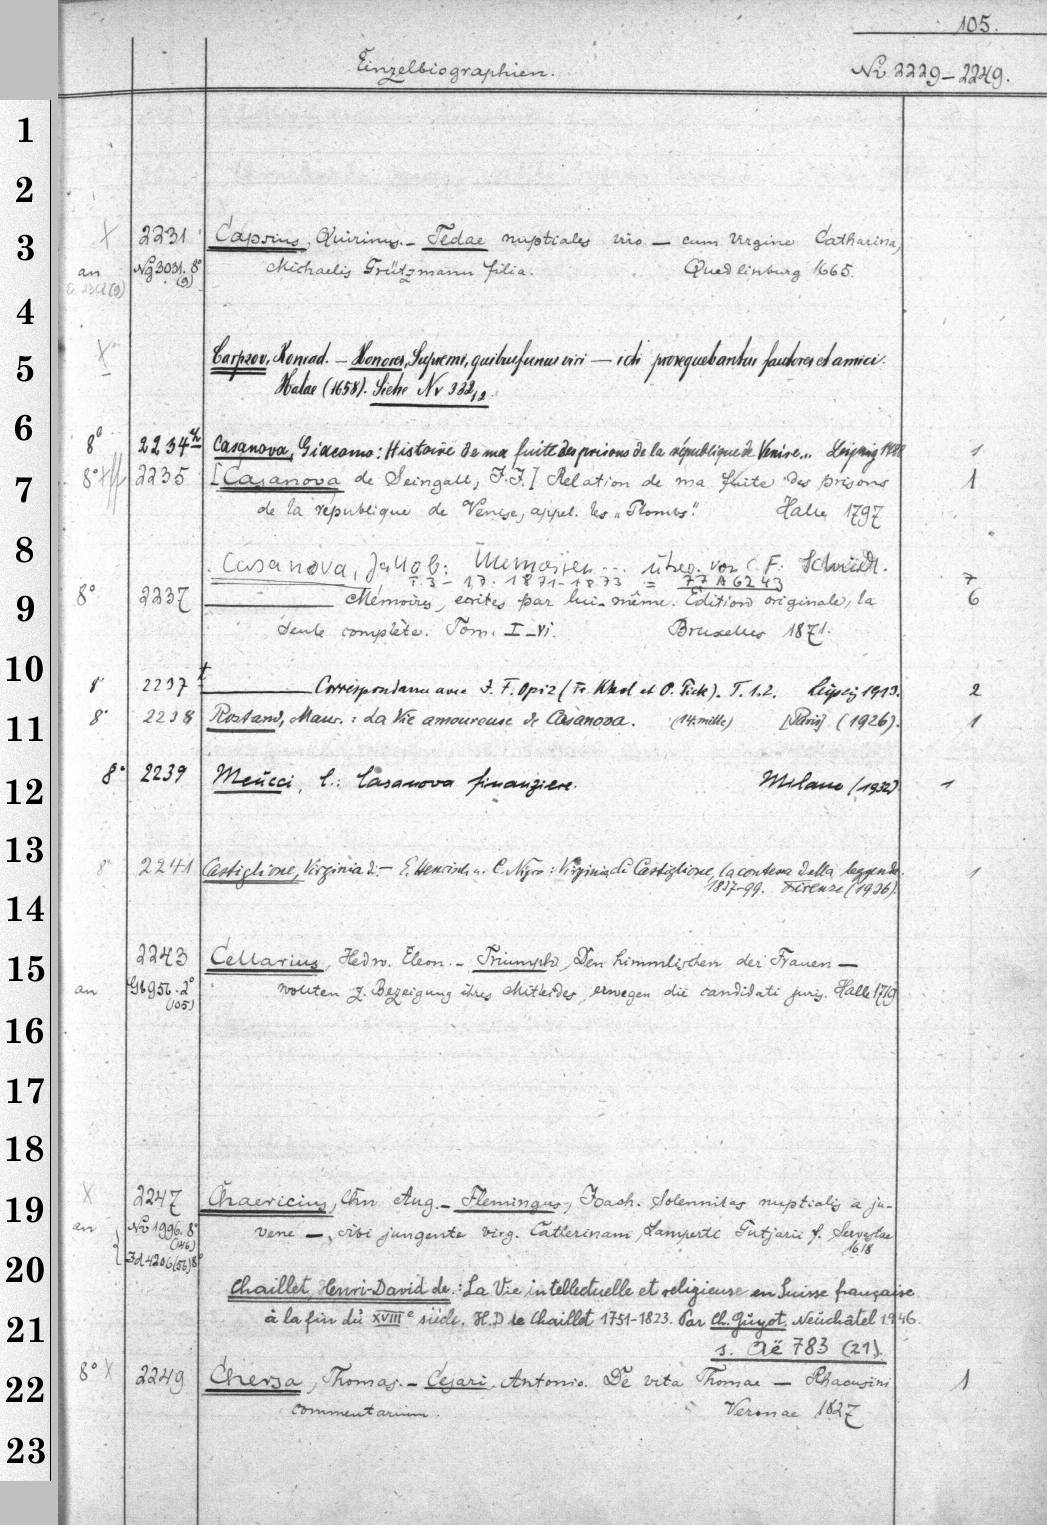 105.
Einzelbiographien. No 2229-2249.
1
2
3
X 2231 Capsius, Quirinus. - Tedae nuptiales viro - cum virgine Catharina,
an Ng 3031. 8° (9) Michaelis Grützmann filia. Quedlinburg 1665.
4
5
X Carpzov, Konrad. - Honores, Supremi, quibus funus viri - icti prosequebantur fautores et amici.
Halae (1658). Siehe Nr 332,12
6
8° 2234 Casanova, Giacomo: Histoire de ma fuite des prisons de la république de Venise... Leipzig 1
7
8° 2235 [Casanova de Seingalt, J.J.] Relation de ma fuite des prisons 1
de la république de Venise, appel. les „Plombs". Halle 1797
8
Casanova, Jakob: Memoiren ... übers. von C. F. Schmidt.
T. 3 - 17. 1871-1873 = 77 A 6243 7
9
8° 2237 Mémoires, écrites par lui-même. Edition originale, la 6
seule complète. Tom. I-VI. Bruxelles 1871.
10
8° 2237 t Correspondance avec J. F. Opiz (Fr. Khol et O. Pick). T. 1.2. Leipzig 1913. 2
11
8° 2238 Rostand, Maur.: La Vie amoureuse de Casanova. (14. mille) [Paris] (1926). 1
12
8° 2239 Meucci, C.: Casanova finanziere. Milano (1932) 1
13
8° 2241 Castiglione, Virginia di. - E. Henrich u. C. Nigro: Virginia di Castiglione, la contessa della leggenda. 1
1837-99. Firenze (1936).
14
15
2243 Cellarius, Hedw. Eleon. - Triumph, Den himmlischen der Frauen -
an Gb 956. 2° (105) wollten z. Bezeigung ihres Mitleides erwegen die candidati juris. Halle 1719
16
17
18
19
X 2247 Chaericius, Chn Aug. - Flemingus, Joach. Solennitas nuptialis a ju-
an No 1996. 8° (146) vene -, sibi jungente virg. Catherinam, Lamperti Gutjarii f. Servestae
1618
20
Zd 4206 (56) 8°
Chaillet, Henri-David de: La Vie intellectuelle et religieuse en Suisse française
21
à la fin du XVIIIe siècle. H.D de Chaillet 1751-1823. Par Ch. Guyot. Neuchâtel 1946.
s. Aë 783 (21).
22
8° X 2249 Chersa, Thomas. - Cesari, Antonio. De vita Thomae - Rhacusini 1
commentarium. Veronae 1827
23